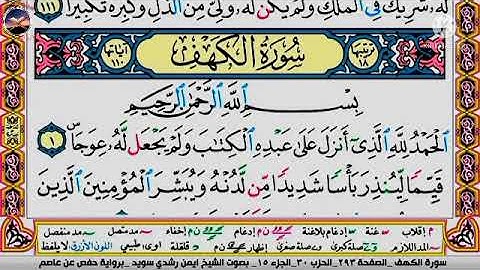 لَهُۥ شَرِيكٌ فِى ٱلْمُلْكِ وَلَمْ يَكُن لَّهُۥ وَلِىٌّ مِّنَ ٱلذُّلِّ وَكَبِّرْهُ تَكْبِيرًا ١١١
ترتيبها ١٨ سُورَةُ الكَهْفِ آياتها ١١٠
بِسْمِ ٱللَّهِ ٱلرَّحْمَٰنِ ٱلرَّحِيمِ
ٱلْحَمْدُ لِلَّهِ ٱلَّذِىٓ أَنزَلَ عَلَىٰ عَبْدِهِ ٱلْكِتَٰبَ وَلَمْ يَجْعَل لَّهُۥ عِوَجَاۜ ١
قَيِّمًا لِّيُنذِرَ بَأْسًا شَدِيدًا مِّن لَّدُنْهُ وَيُبَشِّرَ ٱلْمُؤْمِنِينَ ٱلَّذِينَ
م إقلاب غنة إدغام بلاغنة ن م إدغام إخفاء مد متصل مد منفصل
المد اللازم صلة كبرى صلة صغرى إظهار ن م قلقلة اوى طبيعي اللون الأزرق لا يلفظ
سورة الكهف .الصفحة ٢٩٣ .الحزب ٣٠ .الجزء ١٥ .بصوت الشيخ ايمن رشدي سويد .برواية حفص عن عاصم